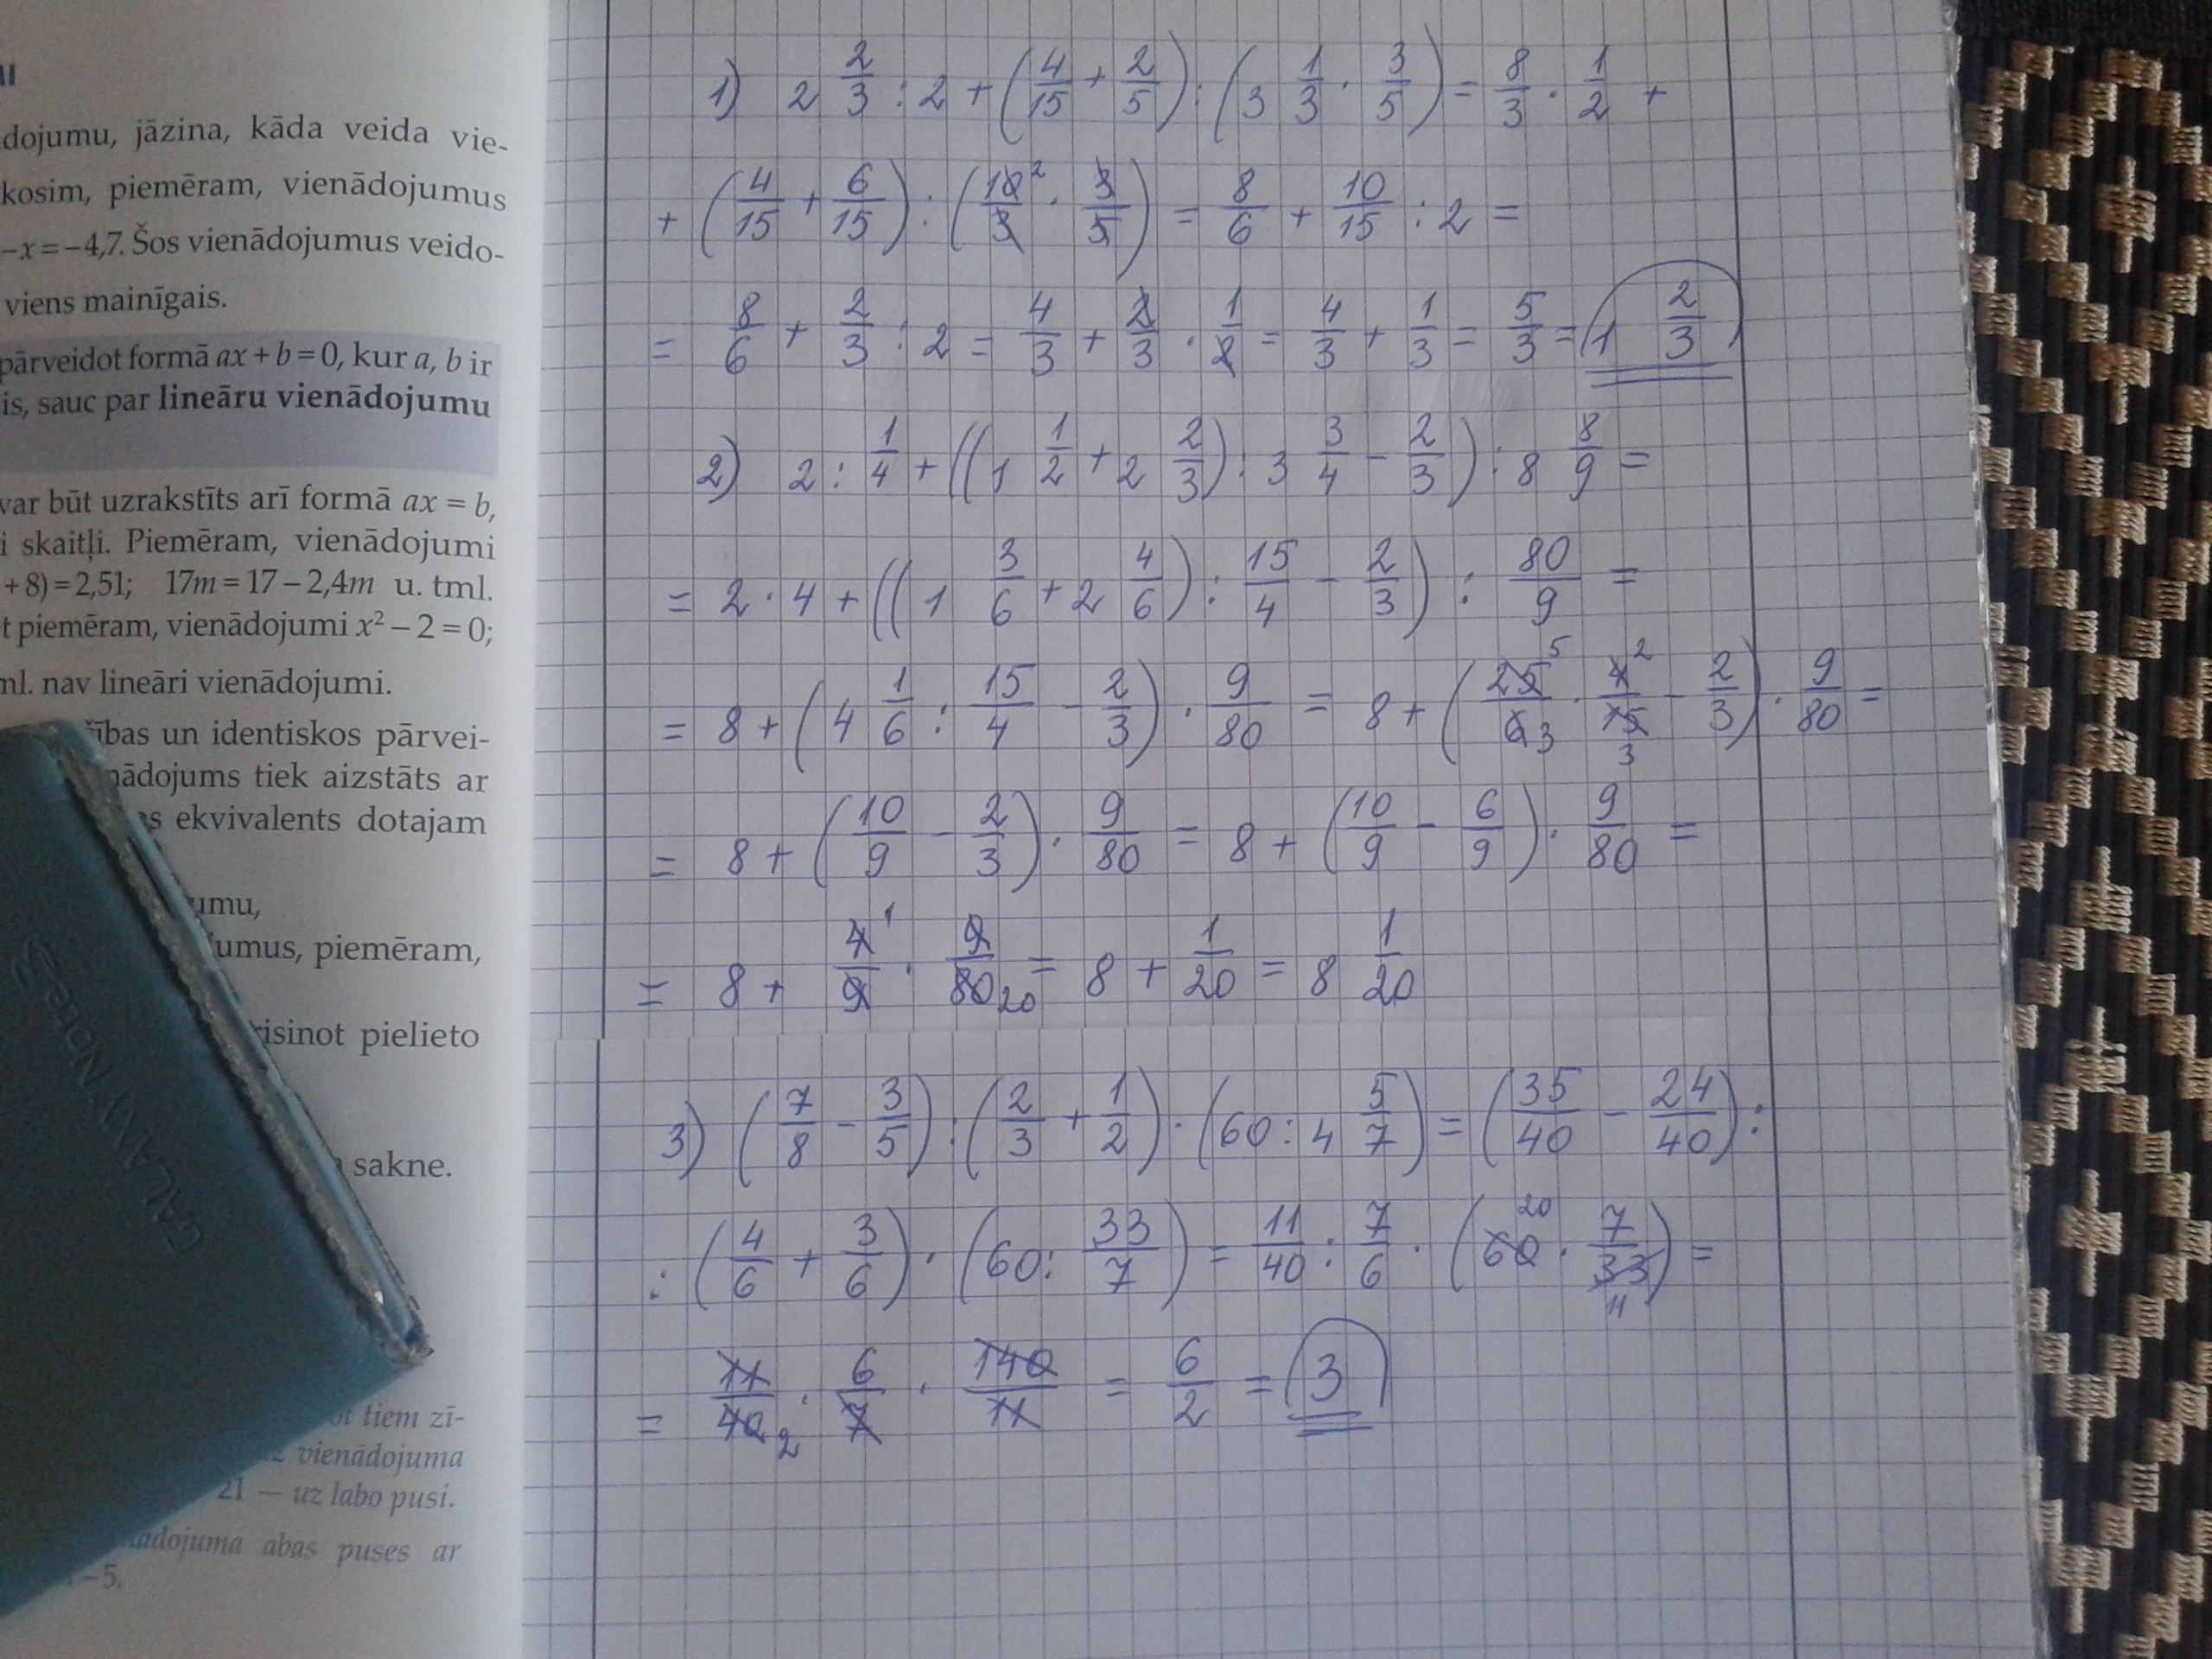 dojumu, jāzina, kāda veida vie-
kosim, piemēram, vienādojumus
-x = -4,7. Šos vienādojumus veido-
viens mainīgais.
pārveidot formā ax + b = 0, kur a, b ir
is, sauc par lineāru vienādojumu
var būt uzrakstīts arī formā ax = b,
i skaitļi. Piemēram, vienādojumi
+8) = 2,51; 17m = 17 – 2,4m u. tml.
t piemēram, vienādojumi x² – 2 = 0;
ml. nav lineāri vienādojumi.
ības un identiskos pārvei-
nādojums tiek aizstāts ar
s ekvivalents dotajam
umu,
umus, piemēram,
risinot pielieto
sakne.
tiem zī-
vienādojuma
21 — uz labo pusi.
ādojuma abas puses ar
-5.
GALAXY Note3
1) 2 2/3 : 2 + (4/15 + 2/5) : (3 1/3 · 3/5) = 8/3 · 1/2 +
+ (4/15 + 6/15) : (10/3 2 · 3/5) = 8/6 + 10/15 : 2 =
= 8/6 + 2/3 : 2 = 4/3 + 2/3 · 1/2 = 4/3 + 1/3 = 5/3 = 1 2/3
2) 2 : 1/4 + ((1 1/2 + 2 2/3) : 3 3/4 - 2/3) : 8 8/9 =
= 2 · 4 + ((1 3/6 + 2 4/6) : 15/4 - 2/3) : 80/9 =
= 8 + (4 1/6 : 15/4 - 2/3) · 9/80 = 8 + (25 5/6 3 · 4 2/15 3 - 2/3) · 9/80 =
= 8 + (10/9 - 2/3) · 9/80 = 8 + (10/9 - 6/9) · 9/80 =
= 8 + 4 1/9 · 9/80 20 = 8 + 1/20 = 8 1/20
3) (7/8 - 3/5) : (2/3 + 1/2) · (60 : 4 5/7) = (35/40 - 24/40) :
: (4/6 + 3/6) · (60 : 33/7) = 11/40 : 7/6 · (60 20 · 7/33 11) =
= 11/40 2 · 6/7 · 140/11 = 6/2 = 3